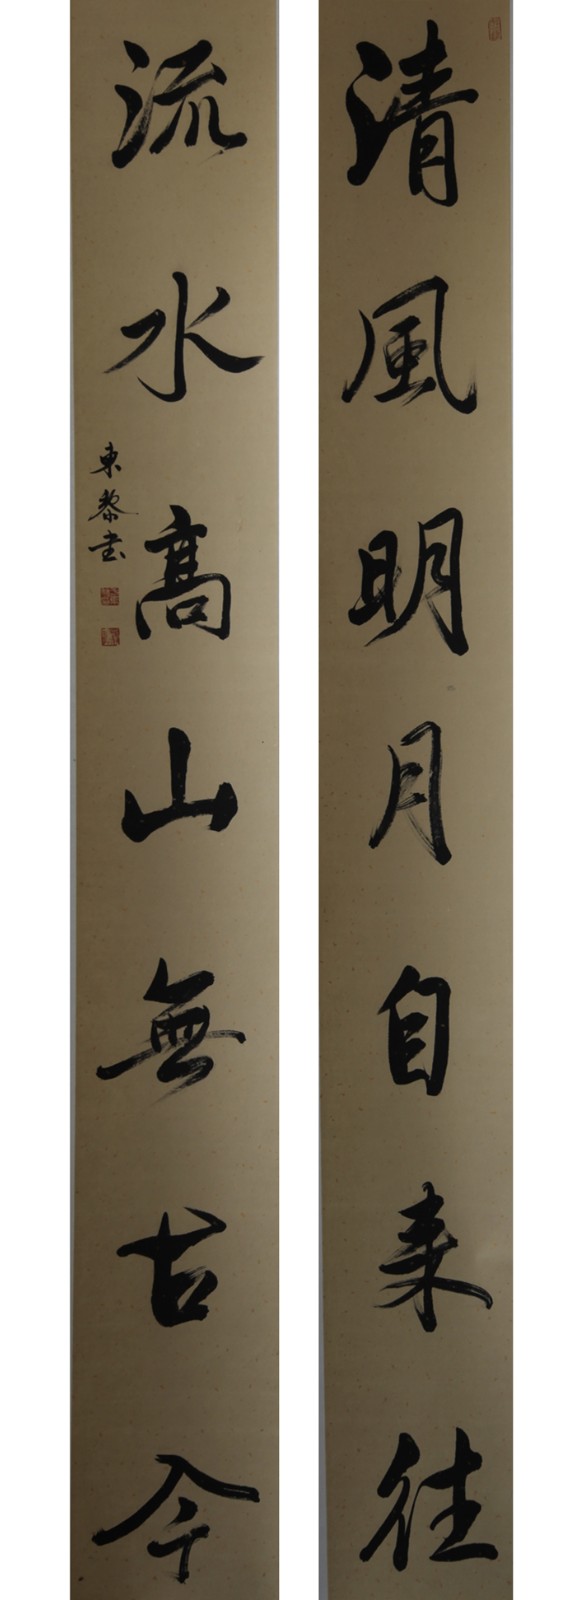 清風明月自来往
流水高山無古今
東黎书